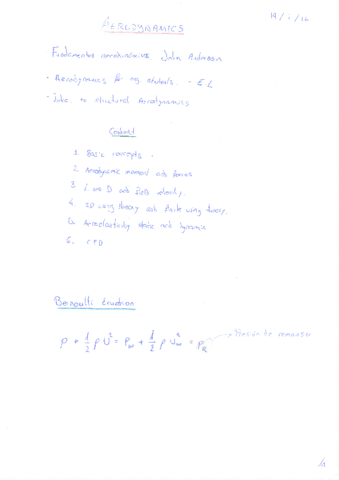 AERODYNAMICS
Fundamentos aerodinamica John Anderson
- Aerodynamics for eng. students. - E.L
- to structural Aerodynamics
Content
1. Basic concepts.
2. Aerodynamic moment and forces
3. L and D and velocity.
4. 2D wing theory and finite wing theory.
5. Aeroelasticity static and dynamic
6. CFD
Benoulli Ecuation
p + 1/2 ρ U² = P∞ + 1/2 ρ U∞² = PR → Presión de remanso